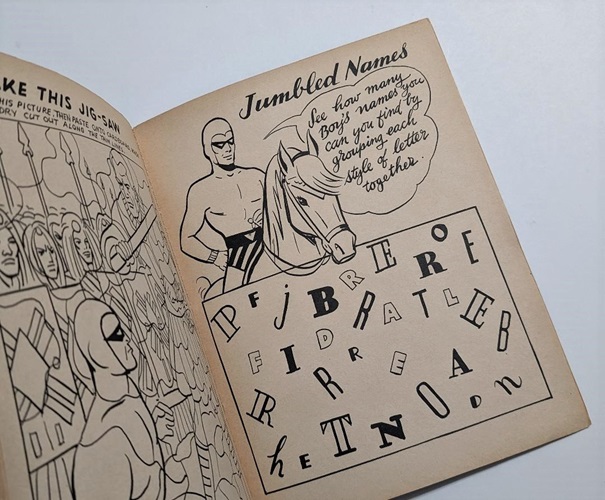 KE THIS JIG-SAW
HIS PICTURE, THEN PASTE ONTO
DRY CUT OUT ALONG THE
Jumbled Names
See how many
Boy's names you
can you find by
grouping each
style of letter
together.
P F j B R E R O E
F I D R A T L E B
R R R E A
h E T N O D n